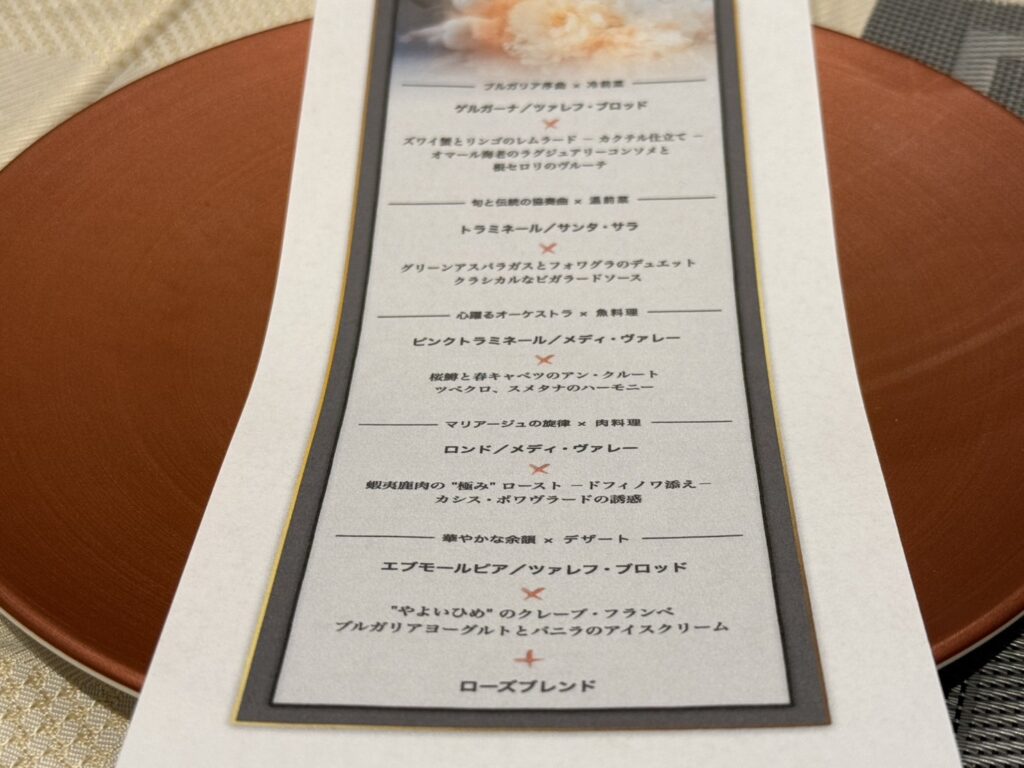 ブルガリア序曲 × 冷前菜
ゲルガーナ／ツァレフ・ブロッド
×
ズワイ蟹とリンゴのレムラード － カクテル仕立て －
オマール海老のラグジュアリーコンソメと
根セロリのヴルーテ
旬と伝統の協奏曲 × 温前菜
トラミネール／サンタ・サラ
×
グリーンアスパラガスとフォワグラのデュエット
クラシカルなビガラードソース
心躍るオーケストラ × 魚料理
ピンクトラミネール／メディ・ヴァレー
×
桜鱒と春キャベツのアン・クルート
ツベクロ、スメタナのハーモニー
マリアージュの旋律 × 肉料理
ロンド／メディ・ヴァレー
×
蝦夷鹿肉の "極み" ロースト －ドフィノワ添え－
カシス・ポワヴラードの誘惑
華やかな余韻 × デザート
エブモールピア／ツァレフ・ブロッド
×
"やよいひめ" のクレープ・フランベ
ブルガリアヨーグルトとバニラのアイスクリーム
＋
ローズブレンド